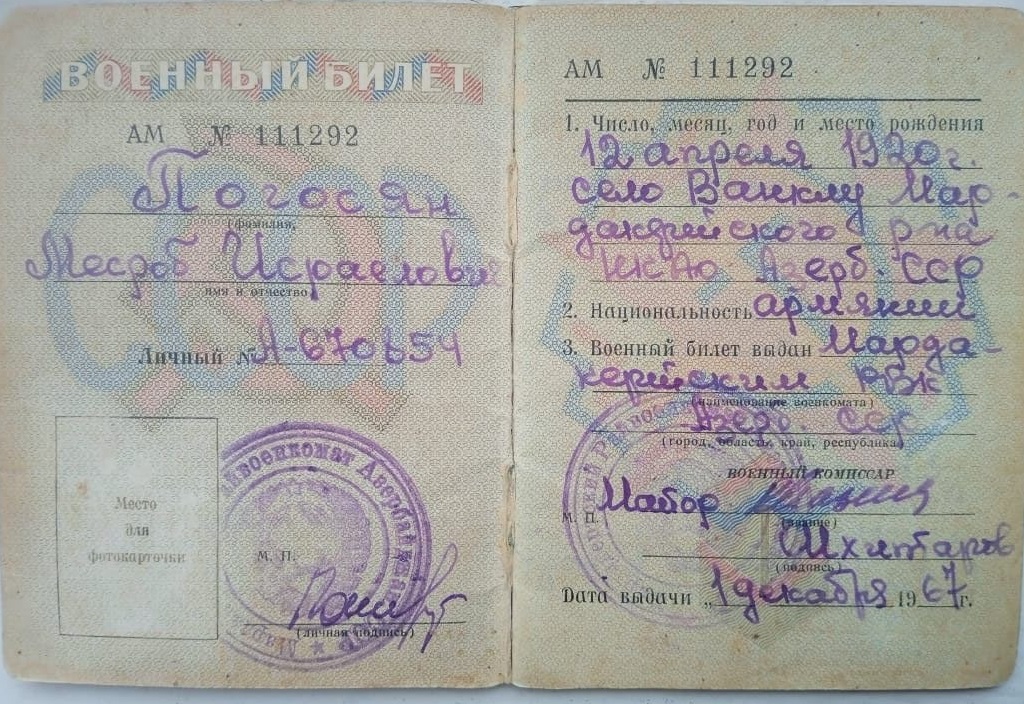 ВОЕННЫЙ БИЛЕТ
АМ № 111292
Погосян
(фамилия,
Месроб Исраелович
имя и отчество)
Личный № А-670654
Место
для
фотокарточки
М. П.
(личная подпись)
АМ № 111292
1. Число, месяц, год и место рождения
12 апреля 1920г.
село Ванклу Мар-
дакертского р-на
НКАО Азерб. ССР
2. Национальность армянин
3. Военный билет выдан Марда-
кертским РВК
(наименование военкомата)
Азерб. ССР
(город, область, край, республика)
ВОЕННЫЙ КОМИССАР
М. П. Майор
(звание)
Мхитаров
(подпись)
Дата выдачи „1 декабря 1967г.